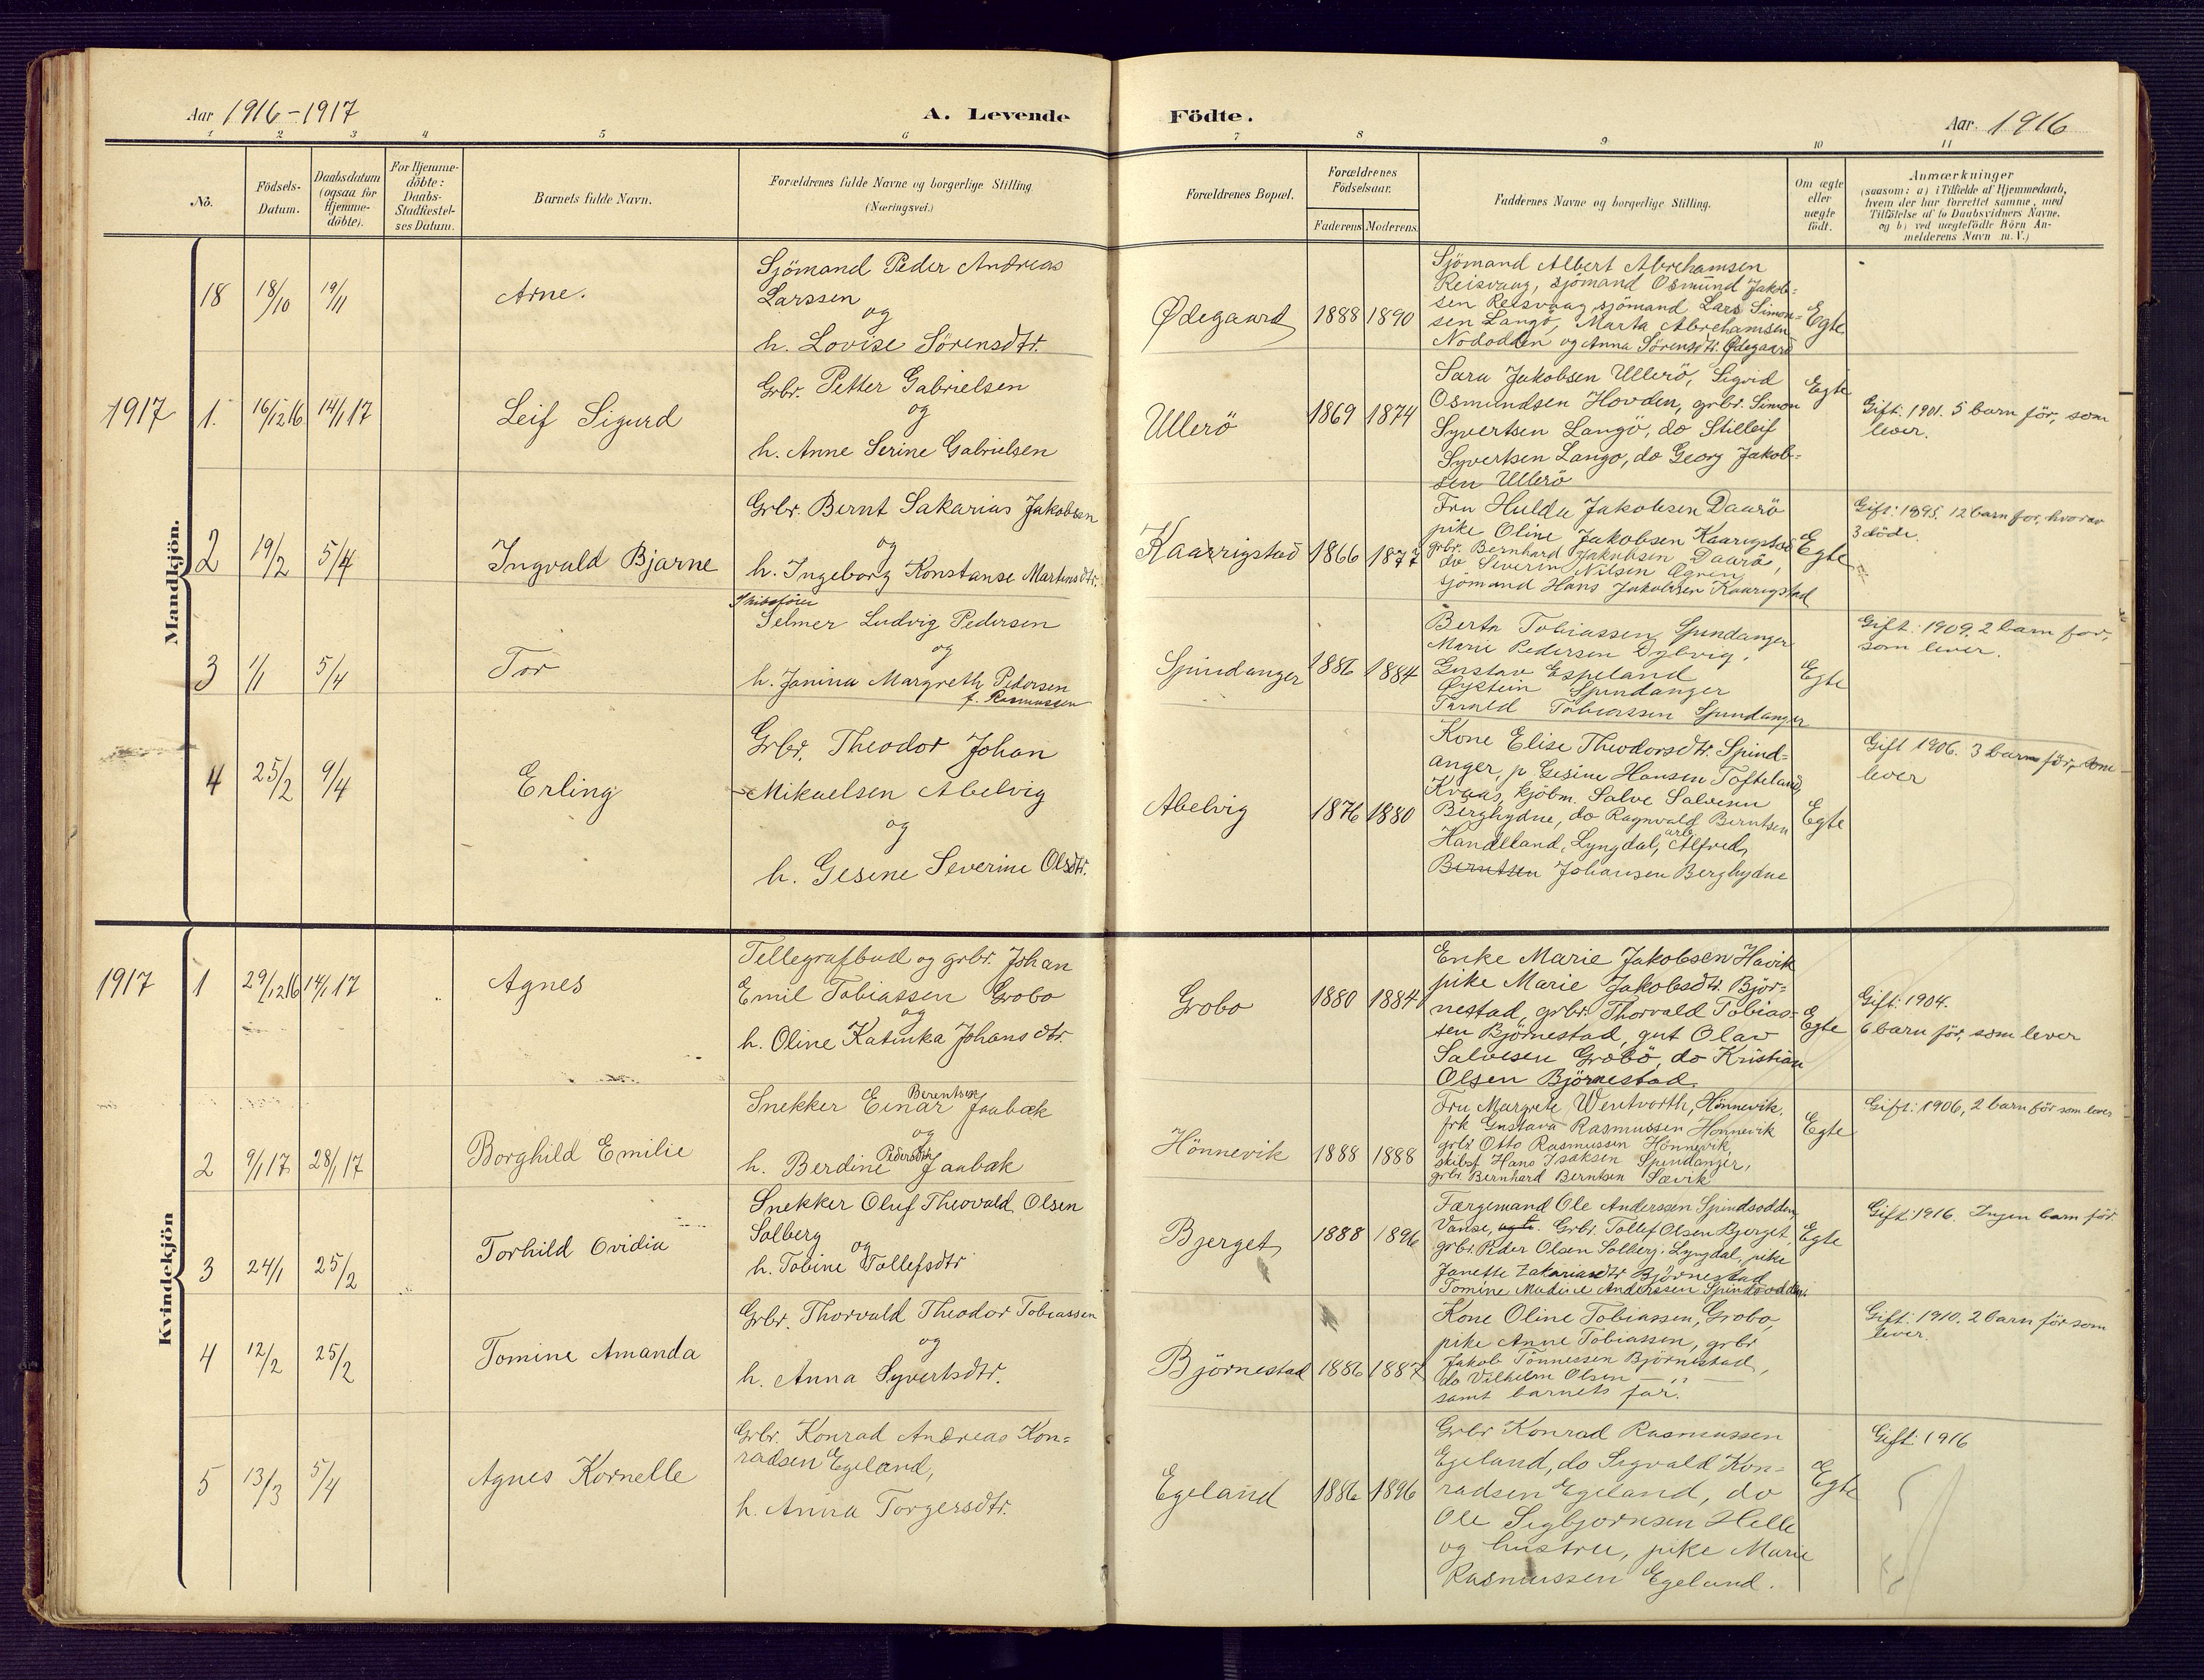 Aar 1916-1917
A. Levende
Födte.
Aar. 1916
1 2 3 4 5 6 7 8 9 10 11
No.
Födsels-
Datum.
Daabsdatum
(ogsaa for
Hjemme-
döbte).
For Hjemme-
döbte:
Daabs-
Stadfæstel-
ses Datum.
Barnets fulde Navn.
Forældrenes fulde Navne og borgerlige Stilling.
(Næringsvei.)
Forældrenes Bopæl.
Forældrenes
Födselsaar.
Faderens Moderens
Faddernes Navne og borgerlige Stilling.
Om ægte
eller
uægte
födt.
Anmærkninger
(saasom: a) i Tilfælde af Hjemmedaab,
hvem der har forrettet samme, med
Tilföielse af to Daabsvidners Navne,
og b) ved uægtefödte Börn An-
melderens Navn m. V.)
Mandkjön.
18 18/10 19/11 Arne.
Sjömand Peder Andreas
Larssen
og
h. Lovise Sörensdtr.
Ødegaard 1888 1890
Sjömand Albert Abrehamsen
Reisvaag, sjömand Osmund Jakob-
sen Reisvaag sjömand Lars Simon-
sen Langö, Marta Abrehamsen
Nododden og Anna Sörensdtr. Ødegaard
Egte
1917 1. 16/12 16 14/1 17 Leif Sigurd
Grbr. Petter Gabrielsen
og
h. Anne Serine Gabrielsen
Ullerö 1869 1874
Sara Jakobsen Ullerö, Sigvid
Osmundsen Hovden, grbr. Simon
Syvertsen Langö, do Stilleif
Syvertsen Lango, do Georg Jakob-
sen Ullerö
Egte
Gift: 1901. 5 barn för, som
lever.
2 19/2 5/4 Ingvald Bjarne
Grbr. Bernt Sakarias Jakobsen
og
h. Ingeborg Konstanse Martinsdtr.
Kaarrigstad 1866 1877
Fru Hulda Jakobsen Daarö
pike Oline Jakobsen Kaarigstad
grbr. Bernhard Jakobsen Daarö,
do Severin Nilsen
sjömand Hans Jakobsen Kaarigstad
Egte
Gift: 1895. 12 barn for, hvorav
3 döde.
3 1/1 5/4 Tor
Skibsförer
Selmer Ludvig Pedersen
og
h. Janina Margreth Pedersen
f. Rasmussen
Spindanger 1886 1884
Berta Tobiassen Spindanger
Marie Pedersen Dybvig,
Gustav Espeland
Øystein Spindanger
Tarald Tobiassen Spindanger
Egte
Gift: 1909. 2 barn for,
som lever.
4 25/2 9/4 Erling
Grbr. Theodor Johan
Mikaelsen Abelvig
og
h. Gesine Severine Olsdtr.
Abelvig 1876 1880
Kone Elise Theodorsdtr. Spind-
anger, p. Gesine Hansen Tofteland,
Kvaas, kjöbm. Salve Salvesen
Berghydne, do Ragnvald Berntsen
Handeland, Lyngdal, arb. Alfred
Berntsen Johansen Berghydne
Egte
Gift 1906. 3 barn för, som
lever
Kvindekjön
1917 1 29/12 16 14/1 17 Agnes
Tellegrafbud og grbr. Johan
Emil Tobiassen Grobo
og
h. Oline Katinka Johansdtr.
Grobo 1880 1884
Enke Marie Jakobsen Havik
pike Marie Jakobsdtr. Björ-
nestad, grbr. Thorvald Tobias-
sen Björnestad, gut Olav
Salvesen Grobö, do Kristian
Olsen Björnestad.
Egte
Gift: 1904.
6 barn för, som lever
2 9/1 17 28/1 17 Borghild Emilie
Snekker Einar Berentsen Jaabæk
og
h. Berdine Pedersdtr. Jaabæk
Hönnevik 1888 1888
Fru Margrete Wentworth, Hönnevik,
frk Gustava Rasmussen Honnevik
grbr Otto Rasmussen Hönnevik,
skibsf Hans Isaksen Spindanger,
grbr. Bernhard Berntsen Sævik
Egte
Gift: 1906, 2 barn för som lever
3 24/1 25/2 Torhild Ovidia
Snekker Oluf Theovald Olsen
Solberg
og
h. Tobine Tollefsdtr
Bjerget 1888 1896
Færgemand Ole Anderssen Spindsodden,
Vanse, Grbr. Tollef Olsen Bjerget,
grbr. Peder Olsen Solberg, Lyngdal, pike
Janette Zakariasdtr Björnestad
Tomine Anderssen Spindsodden
Egte
Gift: 1916. Ingen barn för.
4 12/2 25/2 Tomine Amanda
Grbr. Thorvald Theodor Tobiassen
og
h. Anna Syvertsdtr.
Björnestad 1886 1887
Kone Oline Tobiassen, Grobo,
pike Anne Tobiassen, grbr
Jakob Tönnessen Björnestad,
do Vilhelm Olsen — " —
samt barnets far.
Gift: 1910. 2 barn för som
lever.
5 13/3 5/4 Agnes Kornelle
Grbr. Konrad Andreas Kon-
radsen Egeland,
h. Anna Torgersdtr.
Egeland 1886 1896
Grbr Konrad Rasmussen
Egeland, do Sigvald Kon-
radsen Egeland, do
Ole Sigbjornsen Helle
og hustru, pike Marie
Rasmussen Egeland.
Egte
Gift: 1916